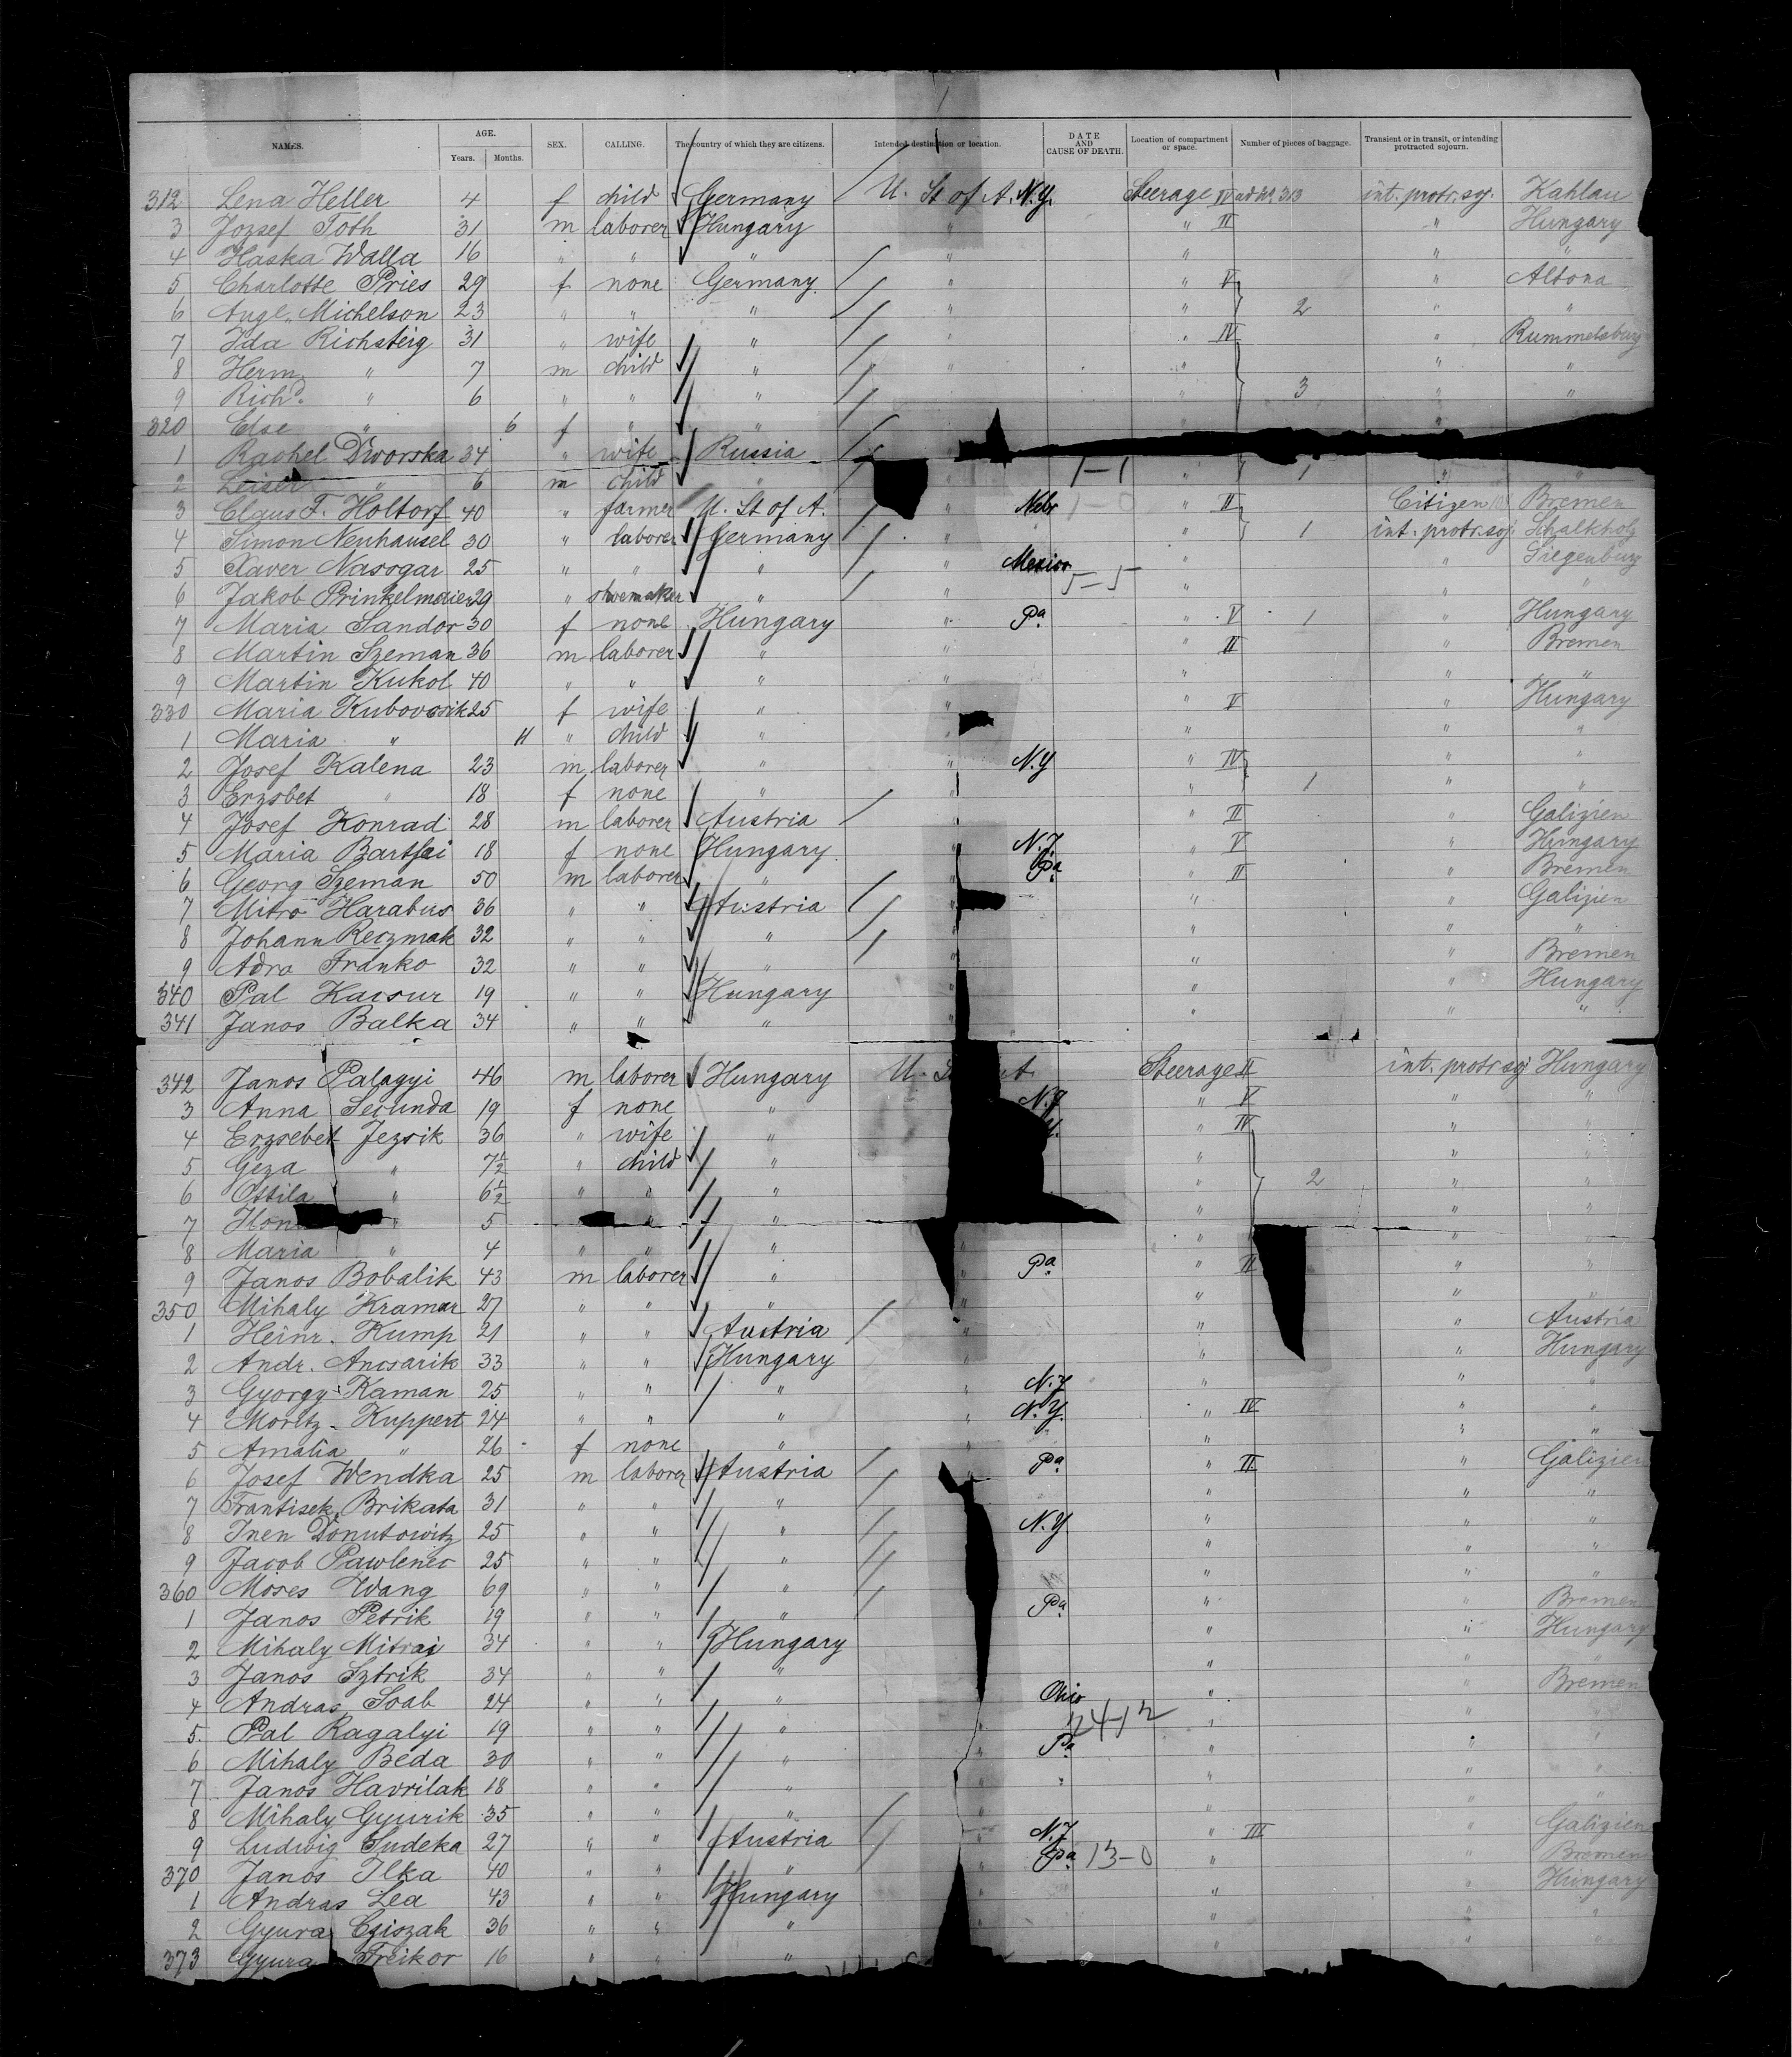 NAMES. AGE. Years. Months. SEX. CALLING. The country of which they are citizens. Intended destination or location. DATE AND CAUSE OF DEATH. Location of compartment or space. Number of pieces of baggage. Transient or in transit, or intending protracted sojourn.
312 Lena Heller 4 f child Germany U. St of A. N.Y. Steerage IV int. protr. soj. Kahlau
3 Jozsef Toth 31 m laborer Hungary " " II " Hungary
4 Haska Walla 16 " " " " " " "
5 Charlotte Pries 29 f none Germany " " V " Altona
6 Aug. Michelson 23 " " " " " 2 " "
7 Ida Richsteig 31 " wife " " " IV " Rummelsburg
8 Herm. " 7 m child " " " " "
9 Richd. " 6 " " " " " 3 " "
320 Else " 6 f " " " " "
1 Rachel Dworska 34 " wife Russia
2 Leiser " 6 m child " " 1-1 " 1 " "
3 Claus F. Holtorf 40 " farmer U. St of A. " Nebr 1-0 " II Citizen Bremen
4 Simon Neuhausel 30 " laborer Germany " " 1 int. protr. soj. Schalkholz
5 Xaver Nasogar 25 " " " " Mexico " " Siegenburg
6 Jakob Prinkelmeier 29 " shoemaker " " 5-5 " " "
7 Maria Sandor 30 f none Hungary " Pa. " V 1 " Hungary
8 Martin Szeman 36 m laborer " " " II " Bremen
9 Martin Kukol 40 " " " " " " "
330 Maria Kubovcsik 25 f wife " " " V " Hungary
1 Maria " 11 " child " " " " "
2 Josef Kalena 23 m laborer " " N.Y " IV " "
3 Erzsbet " 18 f none " " " 1 " "
4 Josef Konrad 28 m laborer Austria " " II " Galizien
5 Maria Bartfai 18 f none Hungary " N.J. " V " Hungary
6 Georg Szeman 50 m laborer " " Pa. " II " Bremen
7 Mitro Harabus 36 " " Austria " " " Galizien
8 Johann Reczmak 32 " " " " " " "
9 Adro Franko 32 " " " " " " Bremen
340 Pal Kacsur 19 " " Hungary " " " Hungary
341 Janos Balka 34 " " " " " " "
342 Janos Palagyi 46 m laborer Hungary U. St of A. Steerage II int. protr soj Hungary
3 Anna Secunda 19 f none " N.J " V " "
4 Erzsebet Jezsik 36 " wife " " IV " "
5 Geza " 7½ " child " " " "
6 Ottila " 6½ " " " " 2 " "
7 " 5 " " " " "
8 Maria " 4 " " " " " " "
9 Janos Bobalik 43 m laborer " " Pa. " II " "
350 Mihaly Kramar 27 " " " " " " "
1 Heinr. Kump 21 " " Austria " " " Austria
2 Andr. Ancsarik 33 " " Hungary " " " Hungary
3 Gyorgy Kaman 25 " " " " N.J " " "
4 Moritz Kuppert 24 " " " " N.Y. " IV " "
5 Amalia " 26 f none " " " " "
6 Josef Wendka 25 m laborer Austria Pa " II " Galizien
7 Frantisek Brikata 31 " " " " " "
8 Inen Donutowitz 25 " " " N.Y. " " "
9 Jacob Pawlenec 25 " " " " " "
360 Moses Wang 69 " " " " " "
1 Janos Petrik 19 " " " Pa. " " Bremen
2 Mihaly Mitraj 34 " " Hungary " " Hungary
3 Janos Sztrik 34 " " " " " "
4 Andras Soab 24 " " " Ohio " " Bremen
5. Pal Ragalyi 19 " " " " 24-12 " " "
6 Mihaly Beda 30 " " " " Pa " " "
7 Janos Havrilak 18 " " " " " " " "
8 Mihaly Gyurik 35 " " " " " " "
9 Ludwig Sudeka 27 " " Austria " N.J " III " Galizien
370 Janos Ilka 40 " " " " Pa. 13-0 " " Bremen
1 Andras Lea 43 " " Hungary " " " Hungary
2 Gyura Cziszak 36 " " " " " "
373 Gyura Freikor 16 " " " " " "